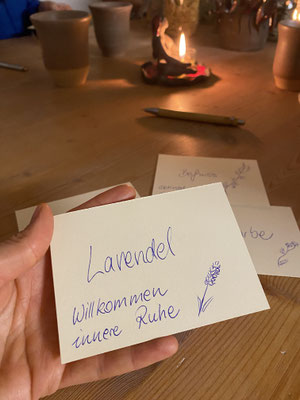 Lavendel
Willkommen
innere Ruhe